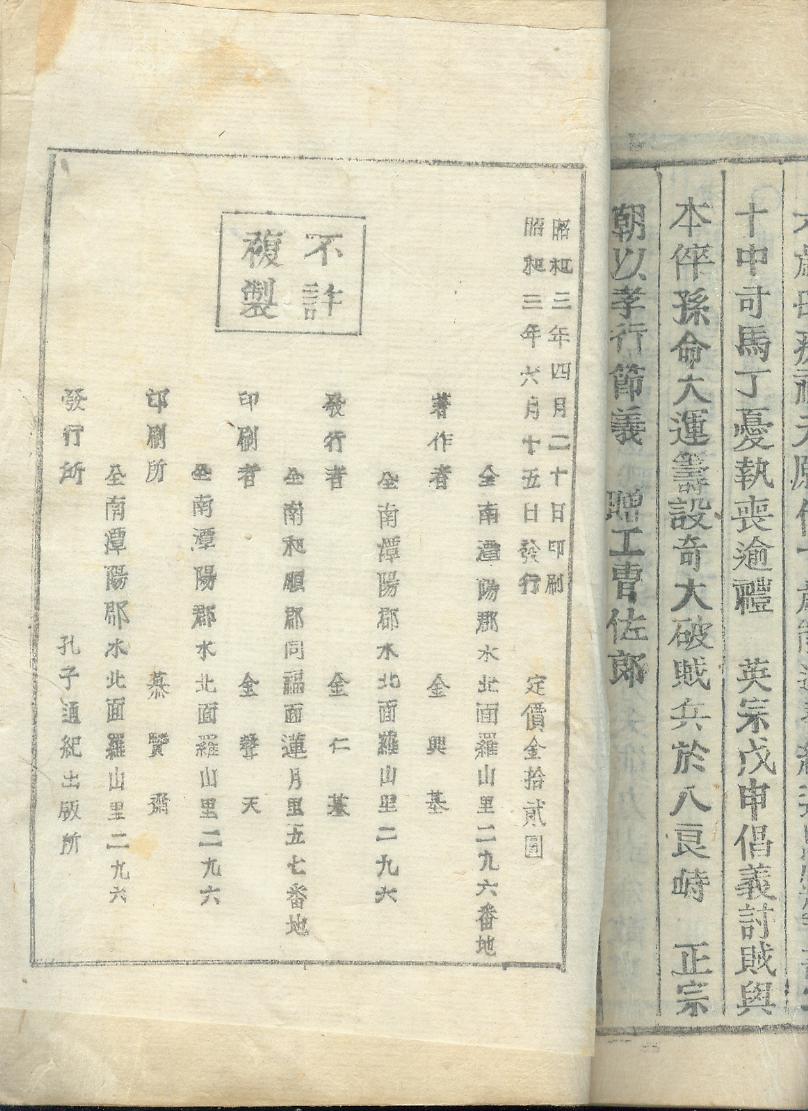 十中司馬丁憂執喪逾禮　英宗戊申倡義討賊與
本倅孫命大運籌設奇大破賊兵於八良峙　正宗
朝以孝行節義　贈工曹佐郎
昭和三年四月二十日印刷
昭和三年六月十五日發行　定價金拾貳圓
不許
複製
全南潭陽郡水北面羅山里二九六番地
著作者　金興基
全南潭陽郡水北面羅山里二九六
發行者　金仁基
全南和順郡同福面蓮月里五七番地
印刷者　金聲天
全南潭陽郡水北面羅山里二九六
印刷所　慕賢齋
全南潭陽郡水北面羅山里二九六
發行所　孔子通紀出版所